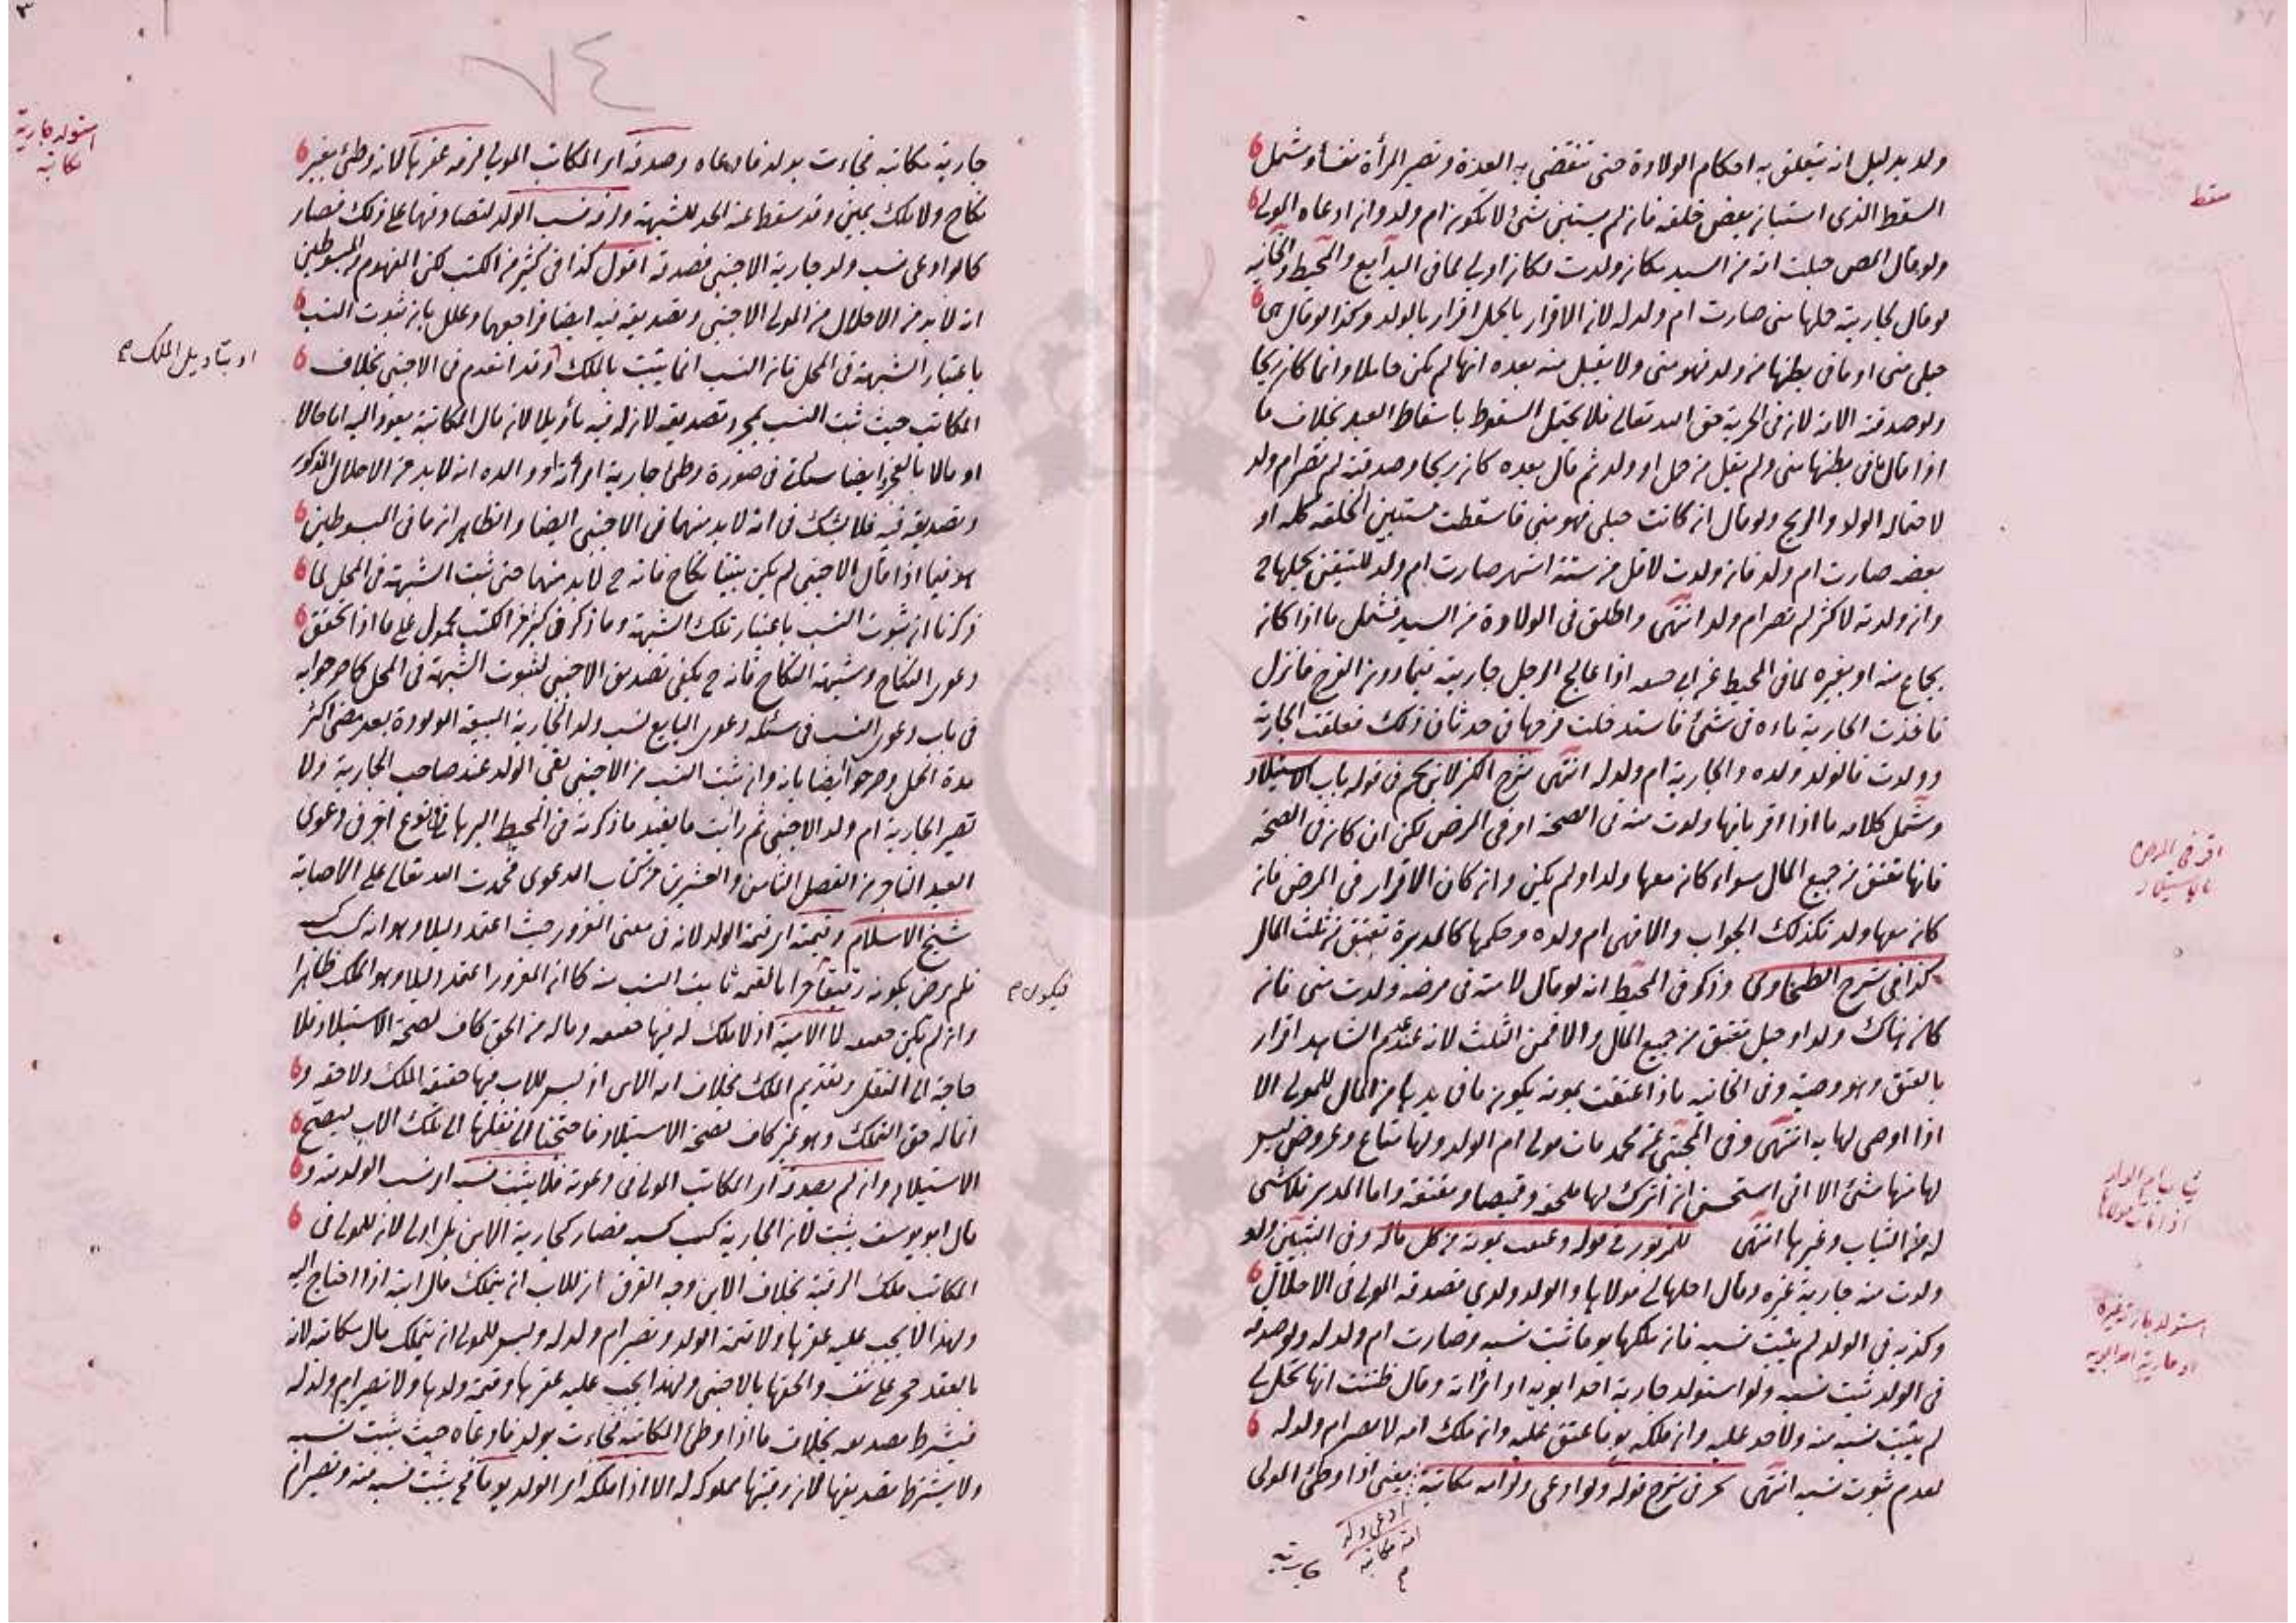 ولد بدليل انه يتعلق به احكام الولادة حتى تنقضى به العدة وتصير المرأة نفساء وشمل
السقط الذى استبان بعض خلقه فان لم يستبن شئ لا تكون ام ولد وان ادعاه المولى
ولو قال المص حبلت امة من السيد مكان ولدت لكان اولى لما فى البدايع والمحيط والخانية
لو قال لجارية حملها منى صارت ام ولد له لان الاقرار بالحمل اقرار بالولد وكذا لو قال هى
حبلى منى او ما فى بطنها من ولد فهو منى ولا يقبل منه بعده انها لم تكن حاملا وانما كان ريحا
ولو صدقته الامة لان فى الحرية حق الله تعالى فلا يحتمل السقوط باسقاط العبد بخلاف ما
اذا قال ما فى بطنها منى ولم يقل من حمل او ولد ثم قال بعده كان ريحا وصدقته لم تصر ام ولد
لاحتماله الولد والريح ولو قال ان كانت حبلى فهو منى فاسقطت مستبين الخلقة كله او
بعضه صارت ام ولد فان ولدت لاقل من ستة اشهر صارت ام ولد للتيقن بحملها ح
وان ولدته لاكثر لم تصر ام ولد انتهى واطلق فى الولادة من السيد فشمل ما اذا كانه
بجماع منه او بغيره لما فى المحيط عن ابى حنيفة اذا عالج الرجل جاريته فيما دون الفرج فانزل
فاخذت الجارية ماءه فى شئ فاستدخلت فرجها فى حدثان ذلك فعلقت الجارية
وولدت فالولد ولده والجارية ام ولد له انتهى شرح الكنز لابن نجيم فى قوله باب الاستيلاد
وشمل كلامه ما اذا اقر بانها ولدت منه فى الصحة او فى المرض لكن ان كان فى الصحة
فانها تعتق من جميع المال سواء كانه معها ولد او لم يكن وانه كان الاقرار فى المرض فانه
كانه معها ولد فكذلك الجواب والا فهى ام ولده وحكمها كالمدبرة تعتق من ثلث المال
كذا فى شرح الطحاوى وذكر فى المحيط انه لو قال لامته فى مرضه ولدت منى فانه
كان هناك ولد او حبل تعتق من جميع المال والا فمن الثلث لانه عند عدم الشاهد اقرار
بالعتق وهو وصية وفى الخانيه واذا اعتقت بموته يكون ما فى يدها من المال للمولى الا
اذا اوصى لها به انتهى وفى المجتبى عن محمد مات مولى ام الولد ولها متاع وعروض ليس
لها منها شئ الا انى استحسن ان اترك لها ملحفة وقميصا ومقنعة واما المدبر فلا شئ
له من الثياب وغيرها انتهى للمزبور فى قوله وعتقت بموته من كل ماله وفى التبيين ولو
ولدت منه جارية غيره وقال احلها لى مولاها والولد ولدى فصدقه المولى فى الاحلال
وكذبه فى الولد لم يثبت نسبه فان ملكها يوما ثبت نسبه وصارت ام ولد له ولو صدقه
فى الولد ثبت نسبه ولو استولد جارية احد ابويه او امرأته وقال ظننت انها تحل لى
لم يثبت نسبه منه ولا حد عليه وانه ملكه يوما عتق عليه وانه ملك امه لا تصير ام ولد له
لعدم ثبوت نسبه انتهى بحر فى شرح قوله ولو ادعى ولد امة مكاتبه يعنى اذا وطئ المولى
ادعى ولد
امة مكاتبه
م
جارية
سقط
اقر فى المرض
بالاستيلاد
استولد جارية غيره
او جارية احد ابويه
جارية مكاتبه فجاءت بولد فادعاه وصدقه اى المكاتب المولى لزمه عقرها لانه وطئ بغير
نكاح ولا ملك يمين وقد سقط عنه الحد للشبهة ولزمه نسب الولد لتصادقهما على ذلك فصار
كما لو ادعى نسب ولد جارية الاجنبى فصدقه اقول كذا فى كثير من الكتب لكن المفهوم من المبسوطين
انه لا بد من الاحلال من المولى الاجنبى وتصديقه فيه ايضا فراجعهما وعلل بان ثبوت النسب
باعتبار الشبهة فى المحل فان النسب انما يثبت بالملك وقد انعدم فى الاجنبى بخلاف
المكاتب حيث ثبت النسب بمجرد تصديقه لان له فيه تأويلا لان مال المكاتبة يعود اليه اما حالا
او مالا بالعجز ايضا ستأتى فى صورة وطئ جارية امرأته او والده انه لا بد من الاحلال المذكور
وتصديقه فيه فلا يشك فى انه لا بد منهما فى الاجنبى ايضا والظاهر ان ما فى المبسوطين
هو فيما اذا قال الاجنبى لم يكن بيننا نكاح فانه ح لا بد منهما حتى تثبت الشبهة فى المحل لما
ذكرنا ان ثبوت النسب باعتبار تلك الشبهة وما ذكر فى كثير من الكتب محمول على ما اذا تحقق
دعوى النكاح وشبهة النكاح فانه ح يكفى تصديق الاجنبى لثبوت الشبهة فى المحل كما صرحوا به
فى باب دعوى النسب فى مسئلة دعوى البايع نسب ولد الجارية المبيعة المولودة بعد مضى اكثر
مدة الحمل وصرحوا ايضا بانه وان ثبت النسب من الاجنبى بقى الولد عند صاحب الجارية ولا
تصير الجارية ام ولد الاجنبى ثم رأيت ما يفيد ما ذكرته فى المحيط البرهانى فى نوع آخر فى دعوى
العبد التاجر من الفصل الثامن والعشرين من كتاب الدعوى فحمدت الله تعالى على الاصابة
شيخ الاسلام وقيمته اى قيمة الولد لانه فى معنى المغرور حيث اعتمد دليلا وهو انه كسب كسبه
فلم يرض بكونه رقيقا حرا بالقيمة ثابت النسب منه كما انه المغرور اعتمد دليلا وهو الملك ظاهرا
وان لم يكن حقيقة لا الامة اذ لا ملك له فيها حقيقة وماله من الحق كاف لصحة الاستيلاد فلا
حاجة الى النقل وتقديم الملك بخلاف امة الابن اذ ليس للاب فيها حقيقة الملك ولا حقه و
انما له حق التملك وهو غير كاف لصحة الاستيلاد فاحتجنا الى نقلها الى ملك الاب ليصح
الاستيلاد وان لم يصدقه اى المكاتب المولى فى دعوته فلا يثبت نسبه اى نسب الولد منه و
قال ابو يوسف يثبت لان الجارية كسب كسبه فصار كجارية الابن بل اولى لان للمولى فى
المكاتب ملك الرقبة بخلاف الابن وجه الفرق ان للاب ان يتملك مال ابنه اذا احتاج اليه
ولهذا لا يجب عليه عقرها ولا قيمة الولد وتصير ام ولد له وليس للمولى ان يتملك مال مكاتبه لانه
بالعقد حجر على نفسه والحقها بالاجنبى ولهذا يجب عليه عقرها وقيمة ولدها ولا تصير ام ولد له
فيشترط تصديقه بخلاف ما اذا وطئ المكاتبه فجاءت بولد فادعاه حيث يثبت نسبه
ولا يشترط تصديقها لان رقبتها مملوكه له الا اذا ملكه اى الولد يوما فح يثبت نسبه منه وتصير ام
استولد جارية
مكاتبه
او بتأويل الملك م
فيكون م
٧٤